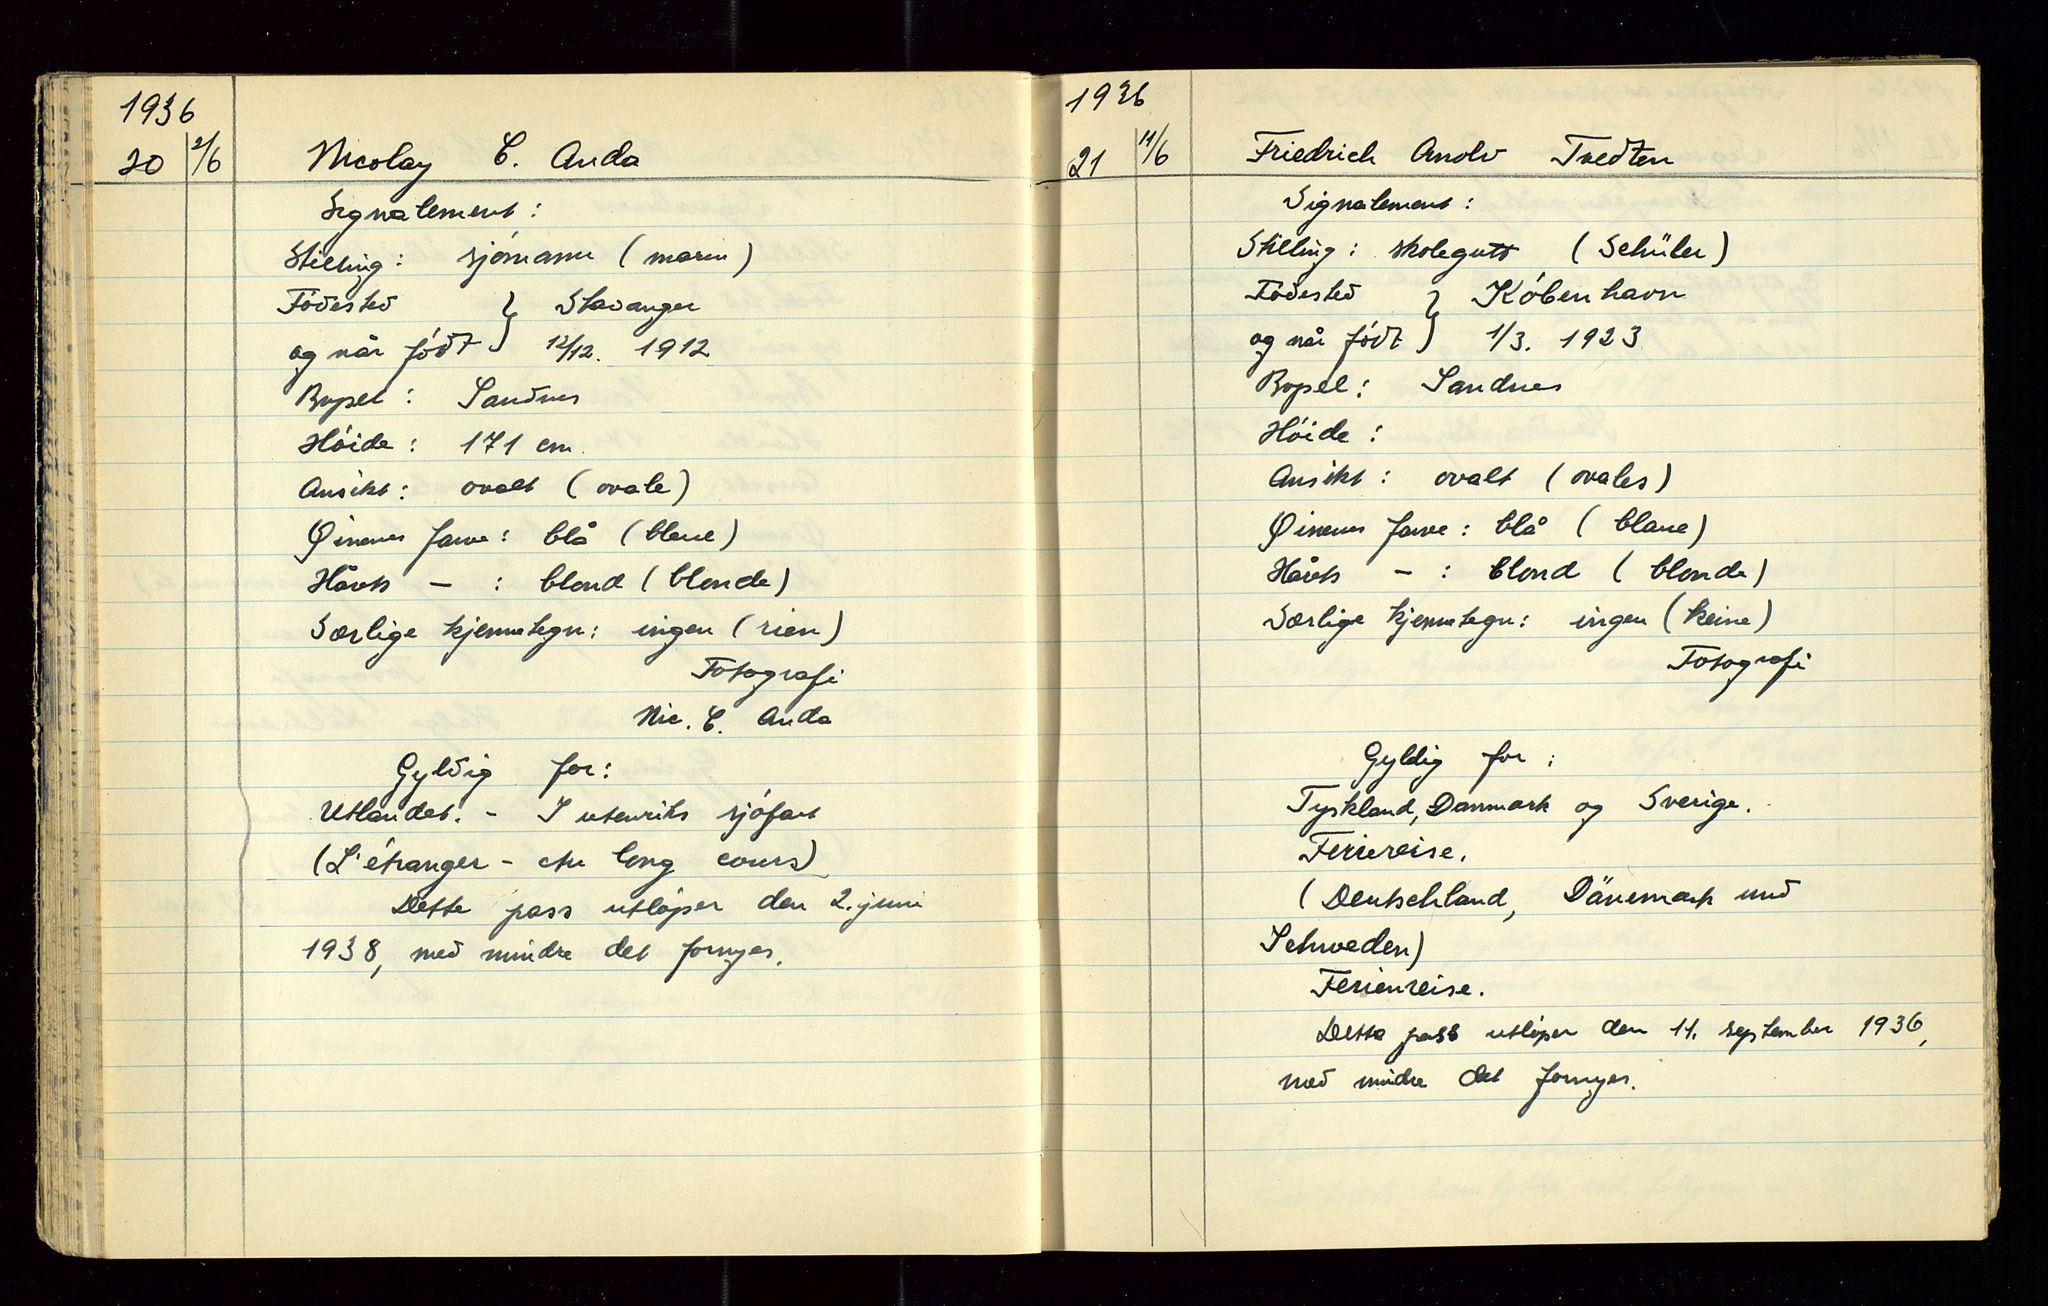 1936
20 2/6 Nicolay C. Anda
Signalement:
Stilling: sjómann (marin)
Fódested } Stavanger
og når fódt } 12/12. 1912
Bopel: Sandnes
Hóide: 171 cm
Ansikt: ovalt (ovale)
Øinenes farve: blå (bleue)
Hårets — : blond (blonde)
Særlige kjennetegn: ingen (rien)
Fotografi
Nic. C. Anda
Gyldig for:
Utlandet. - I utenriks sjófart
(L'étranger - au long cours)
Dette pass utlóper den 2. juni
1938, med mindre det fornyes.
1936
21 11/6 Friedrich Arnold Tvedten
Signalement:
Stilling: skolegutt (Schüler)
Fódested } Kóbenhavn
og når fódt } 1/3. 1923
Bopel: Sandnes
Hóide:
Ansikt: ovalt (ovales)
Øinenes farve: blå (blaue)
Hårets - : blond (blonde)
Særlige kjennetegn: ingen (keine)
Fotografi
Gyldig for:
Tyskland, Danmark og Sverige.
Feriereise.
(Deutschland, Dänemark und
Schweden)
Ferienreise.
Dette pass utlóper den 11. september 1936,
med mindre det fornyes.